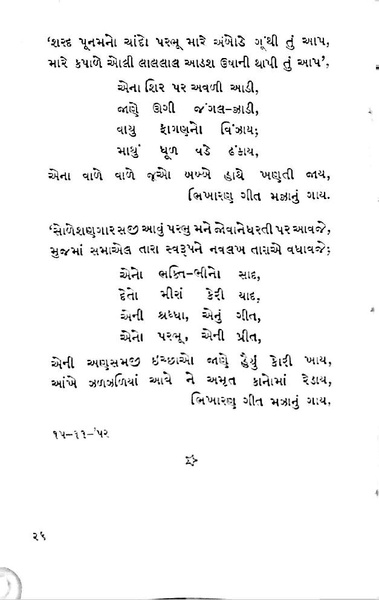 ‘શરદ પૂનમનો ચાંદો પરભૂ મારે અંબોડે ગૂંથી તું આપ,
મારે કપાળે ઓલી લાલલાલ આડશ ઉષાની થાપી તું આપ’,
એના શિર પર અવળી આડી,
જાણે ઊગી જંગલ-ઝાડી,
વાયુ ફાગણનો વિંઝાય;
માથું ધૂળ વડે ઢંકાય,
એના વાળે વાળે જૂઓ બબ્બે હાથે ખણતી જાય,
ભિખારણ ગીત મઝાનું ગાય.
‘સોળેશણગારસજી આવું પરભુ મને જોવાનેધરતી પર આવજે,
મુજમાં સમાએલ તારા સ્વરૂપને નવલખ તારાએ વધાવજે;
એનો ભક્તિ-ભીનો સાદ,
દેતો મીરાં કેરી યાદ,
એની શ્રદ્ધા, એનું ગીત,
એનો પરભૂ, એની પ્રીત,
એની અણસમજી ઇચ્છાઓ જાણે હૈયું કોરી ખાય,
આંખે ઝળઝળિયાં આવે ને અમૃત કાનોમાં રેડાય,
ભિખારણ ગીત મઝાનું ગાય.
૧૫–૧૧–’૫૨
૨૬